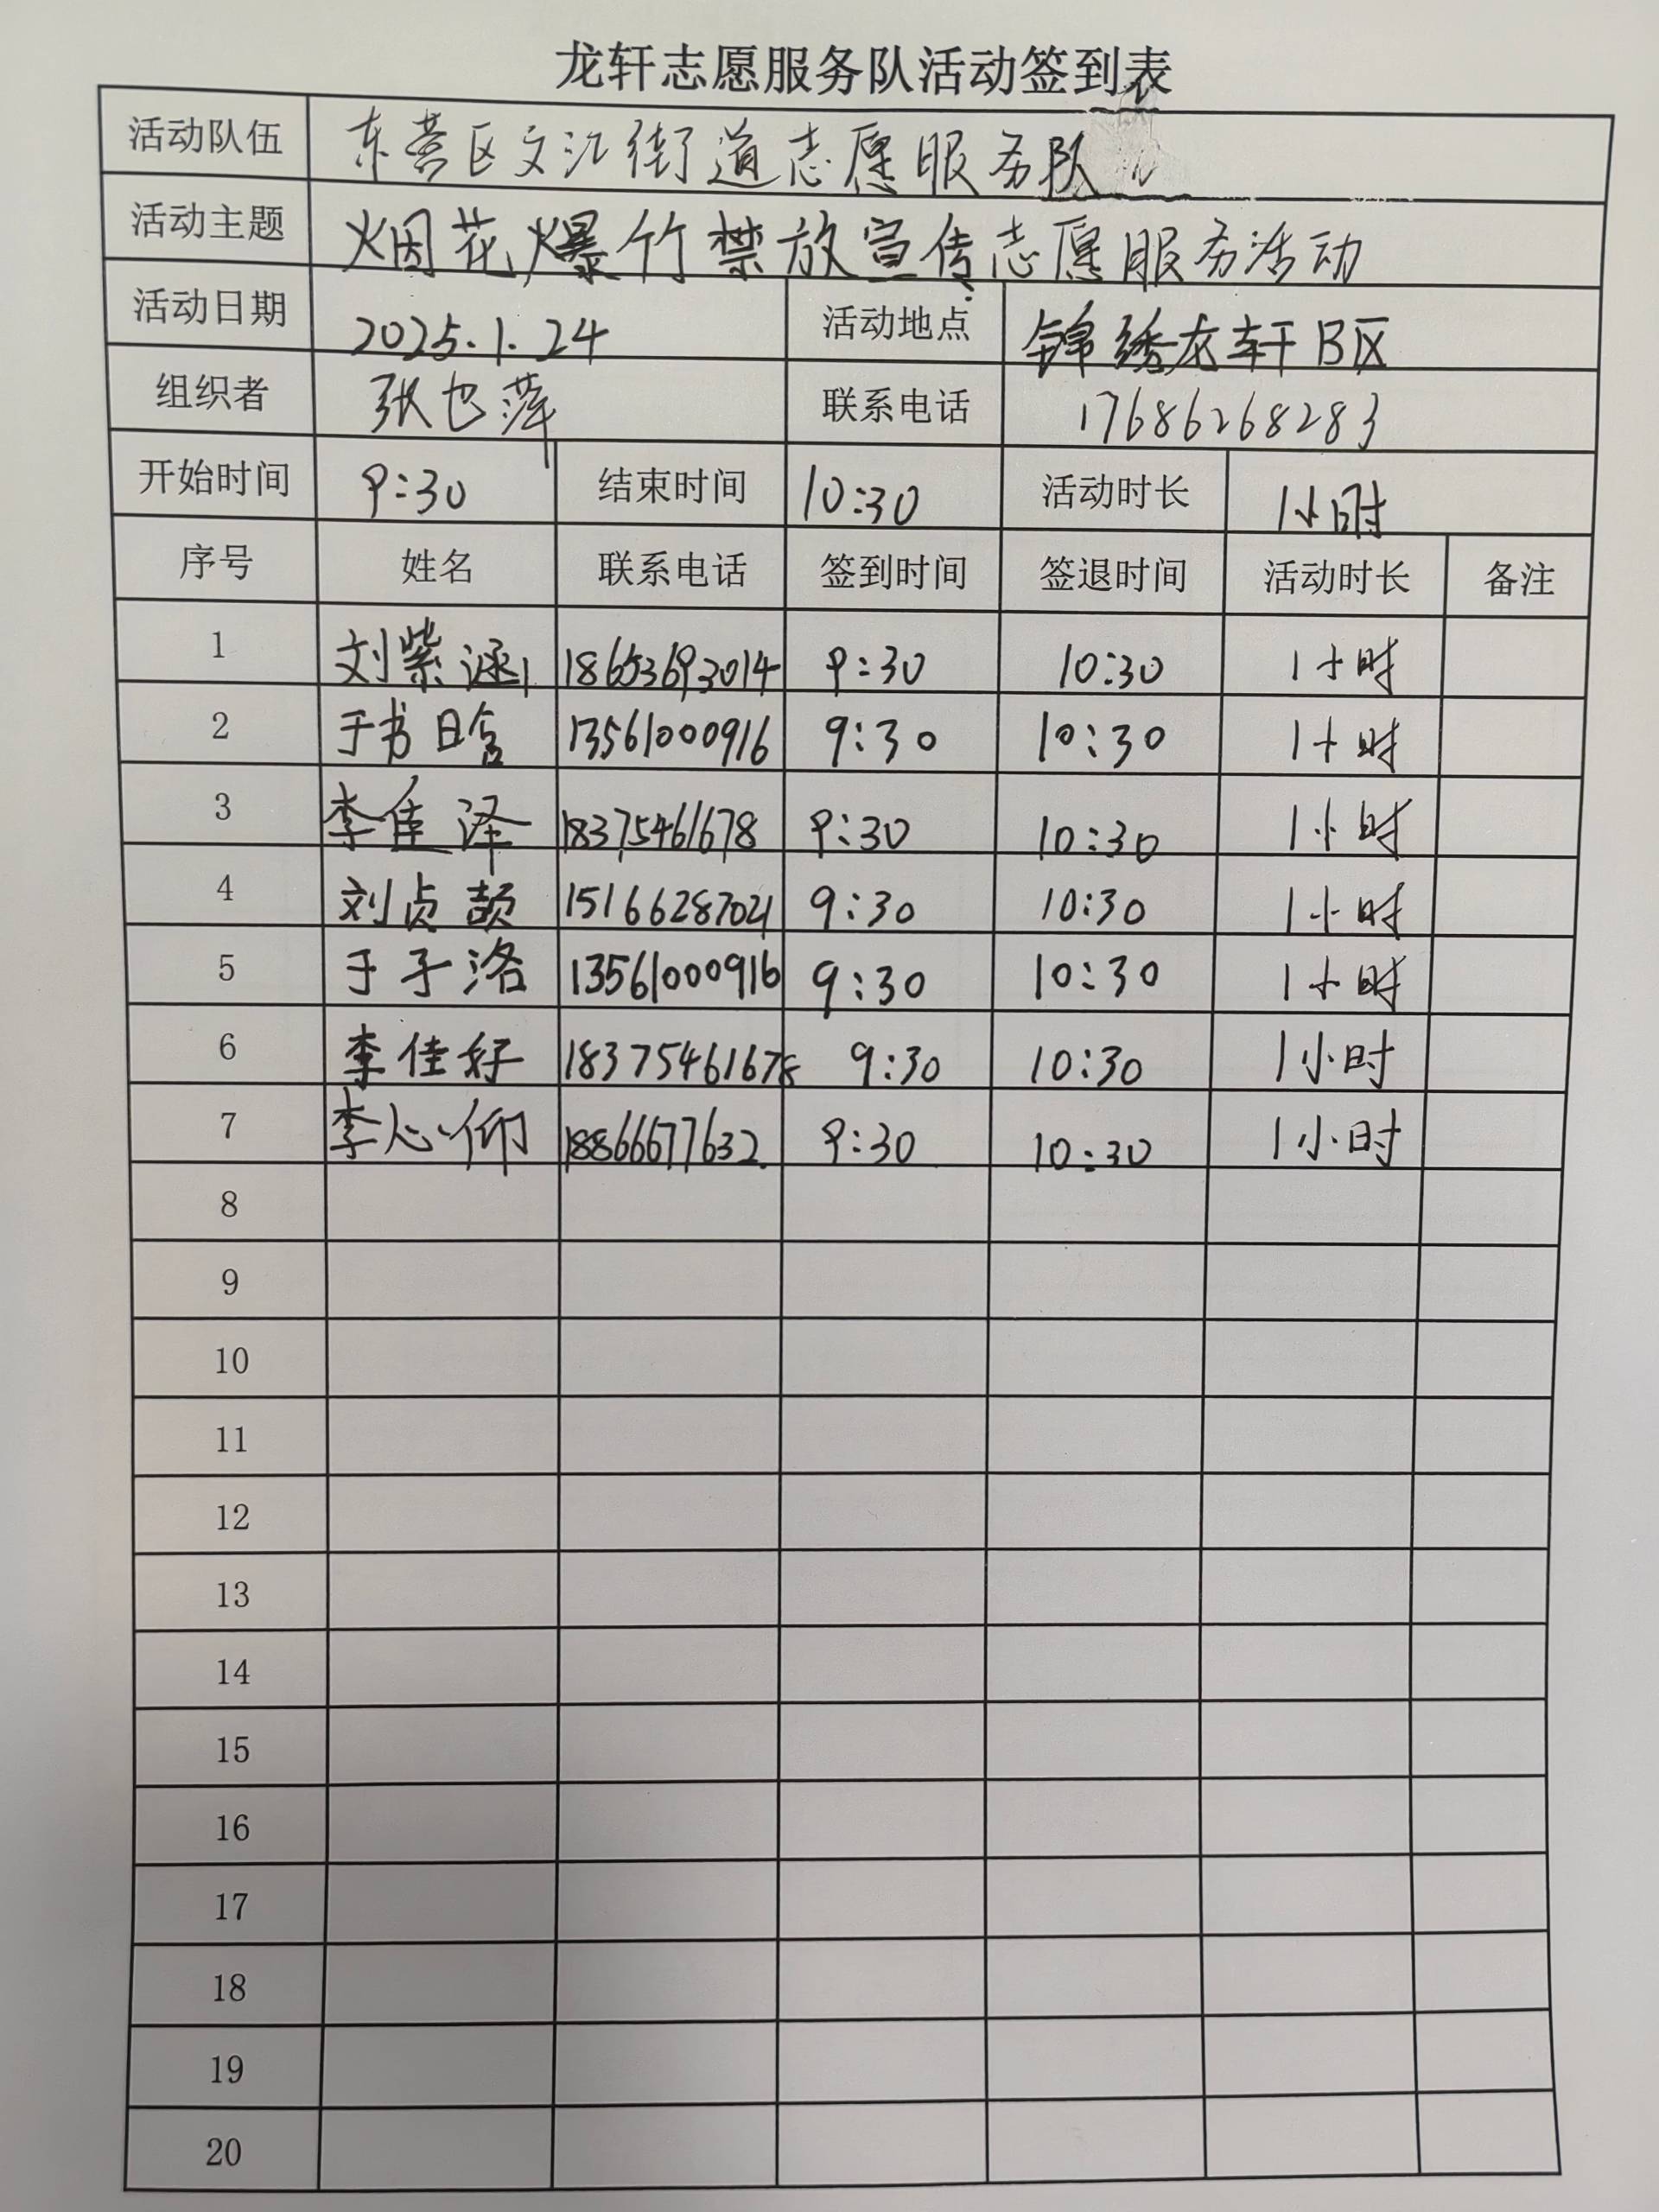 龙轩志愿服务队活动签到表
活动队伍 东营区文汇街道志愿服务队
活动主题 烟花爆竹禁放宣传志愿服务活动
活动日期 2025.1.24 活动地点 锦绣龙轩B区
组织者 张也萍 联系电话 17686268283
开始时间 9:30 结束时间 10:30 活动时长 1小时
序号 姓名 联系电话 签到时间 签退时间 活动时长 备注
1 刘紫涵 18653693014 9:30 10:30 1小时
2 于书晗 13561000916 9:30 10:30 1小时
3 李佳泽 18375461678 9:30 10:30 1小时
4 刘贞颉 15166287021 9:30 10:30 1小时
5 于子洛 13561000916 9:30 10:30 1小时
6 李佳好 18375461678 9:30 10:30 1小时
7 李心仰 18866677632 9:30 10:30 1小时
8
9
10
11
12
13
14
15
16
17
18
19
20